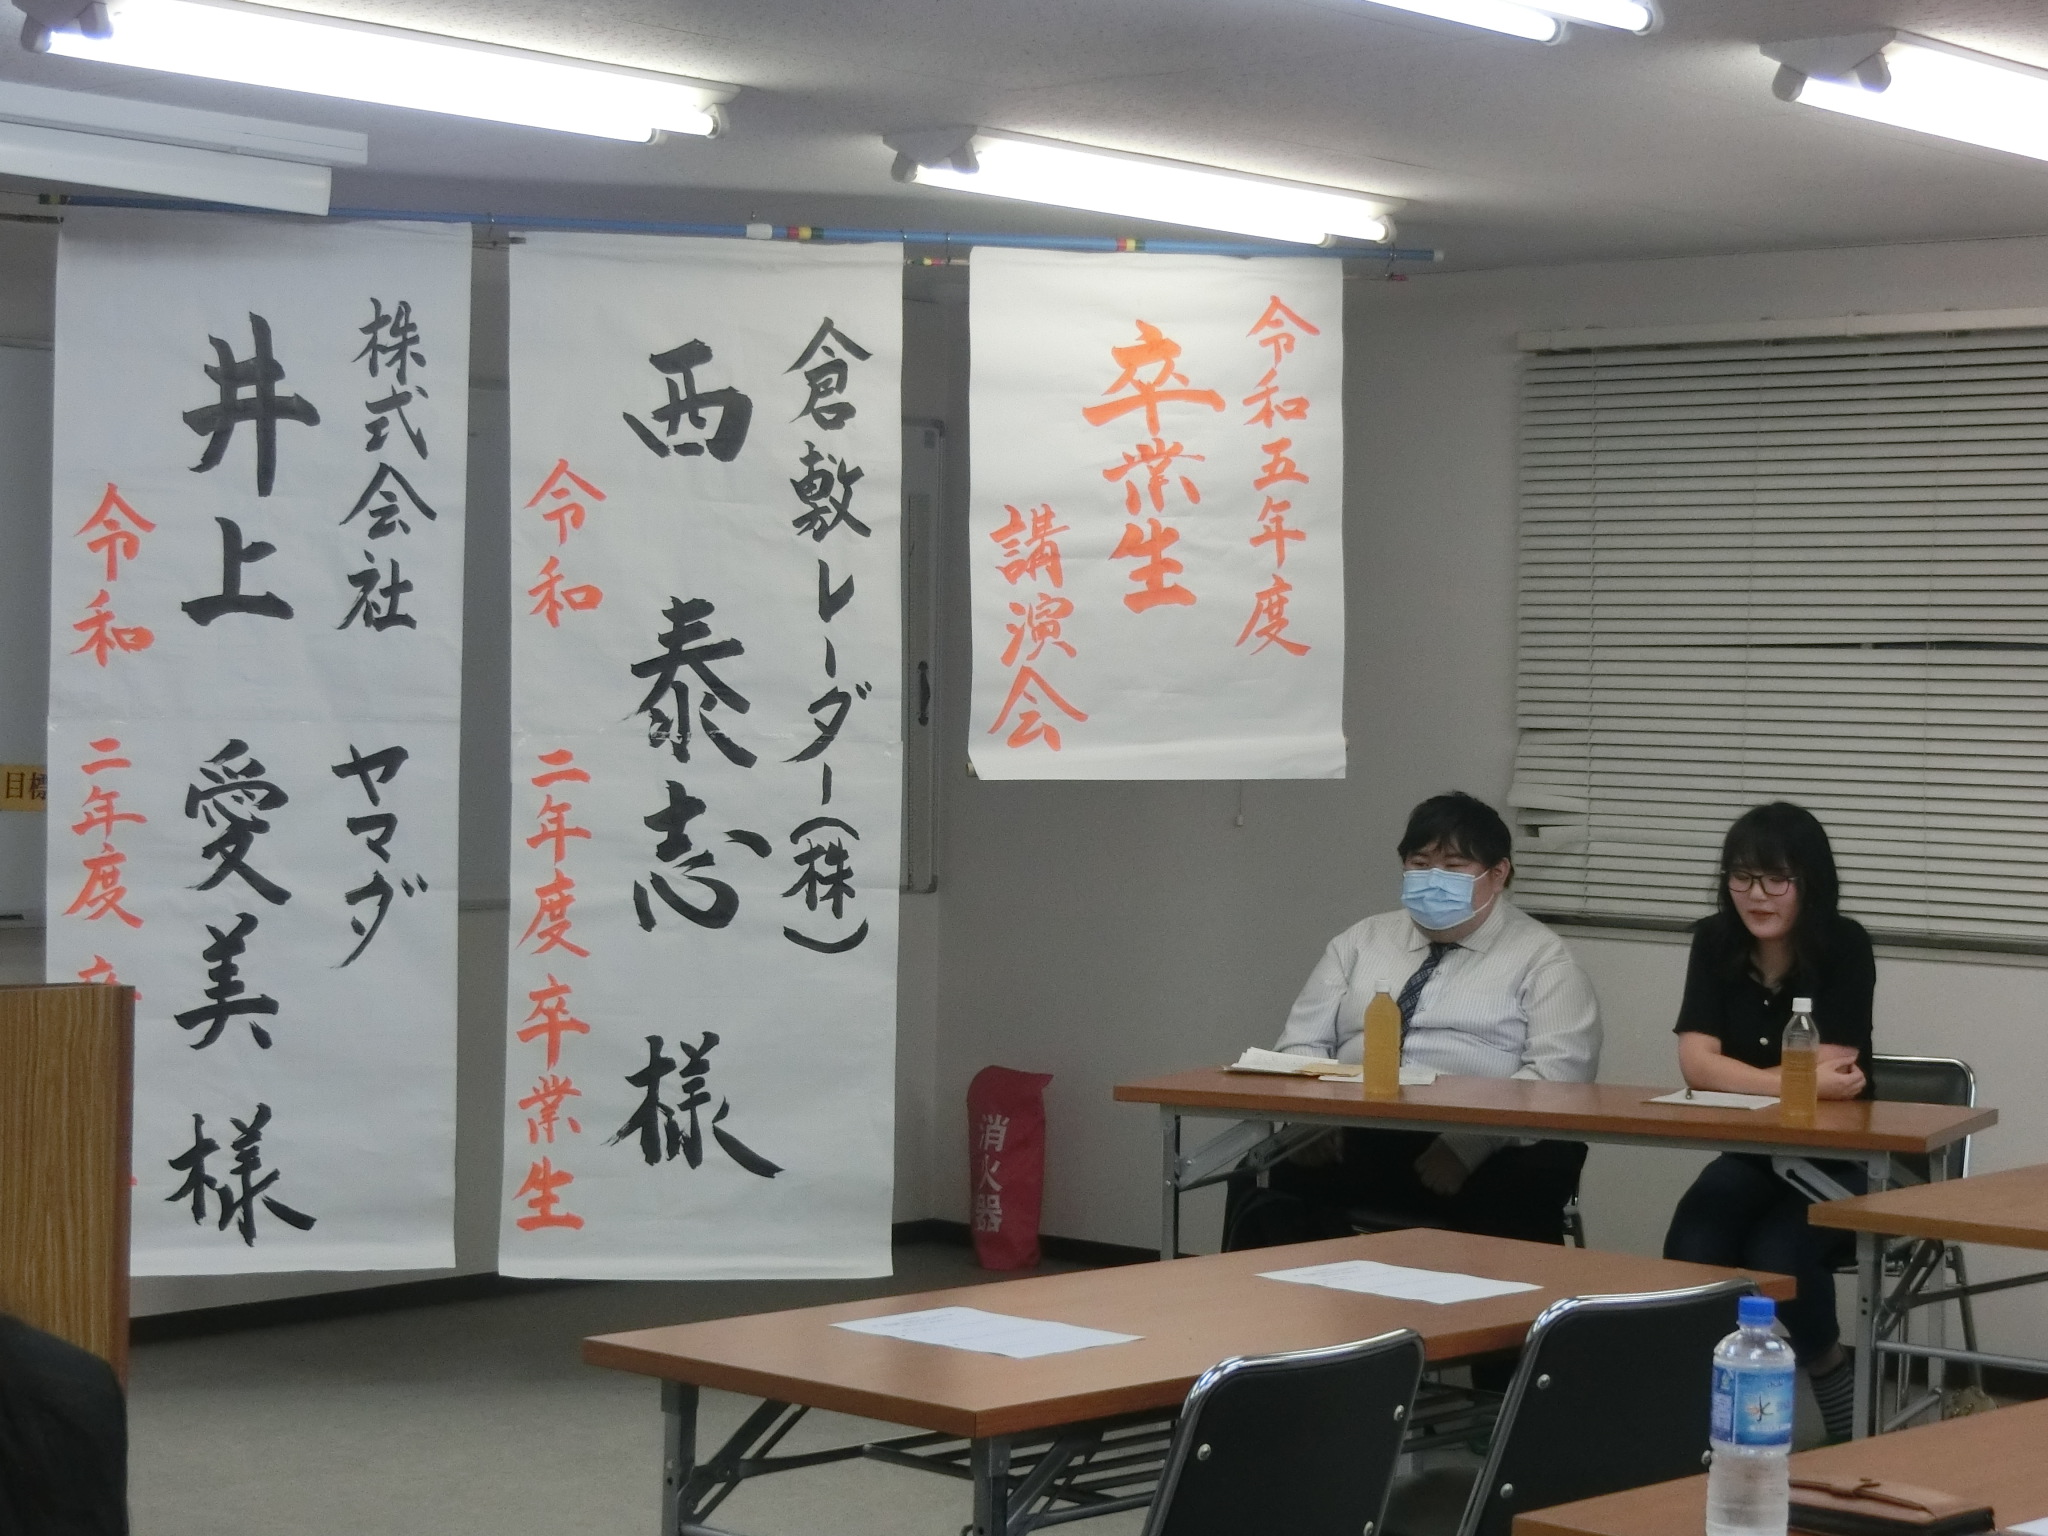 令和五年度
卒業生
講演会
倉敷レーダー(株)
西 泰志 様
令和 二年度 卒業生
株式会社 ヤマダ
井上 愛美 様
令和 二年度 卒
目標
消火器
水